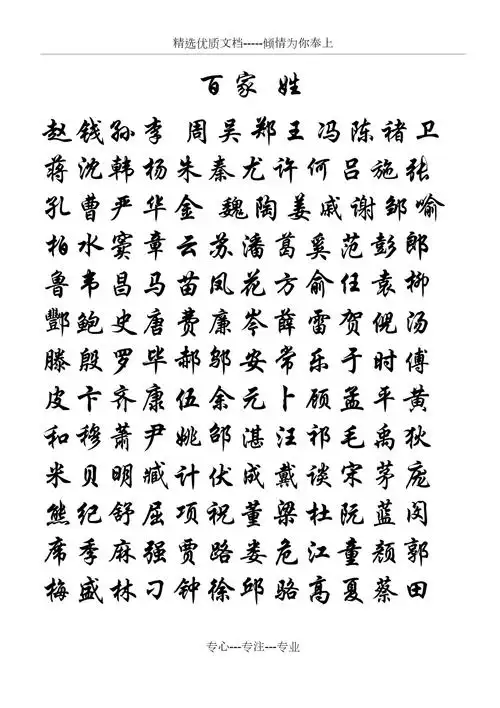 精选优质文档-----倾情为你奉上
百家 姓
赵钱孙李 周吴郑王 冯陈褚卫
蒋沈韩杨朱秦尤许何吕施张
孔曹严华金 魏陶姜戚谢邹喻
柏水窦章云苏潘葛奚范彭郎
鲁韦昌马苗凤花方俞任袁柳
酆鲍史唐费廉岑薛雷贺倪汤
滕殷罗毕郝邬安常乐于时傅
皮卞齐康伍余元卜顾孟平黄
和穆萧尹姚邵湛汪祁毛禹狄
米贝明臧计伏成戴谈宋茅庞
熊纪舒屈项祝董梁杜阮蓝闵
席季麻强贾路娄危江童颜郭
梅盛林刁钟徐邱骆高夏蔡田
专心---专注---专业